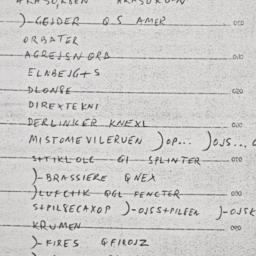 )-GEJDER QS AMER
ORBATER
AGREJSNORD
ELABEJGTS
DLONSE
DIREXTEKNI
DERLINKER KNEXL
MISTOMEVILERUEN )OP... )OJS...
STTIKLOLL GI SPLINTER
)-BRASSIERE QNEX
)LUFCHIK QGL FENCTER
STPILSECAXOP )-OJSSTPILFEN )-OJSK
KRUMEN
)-FIRES QFIROJZ